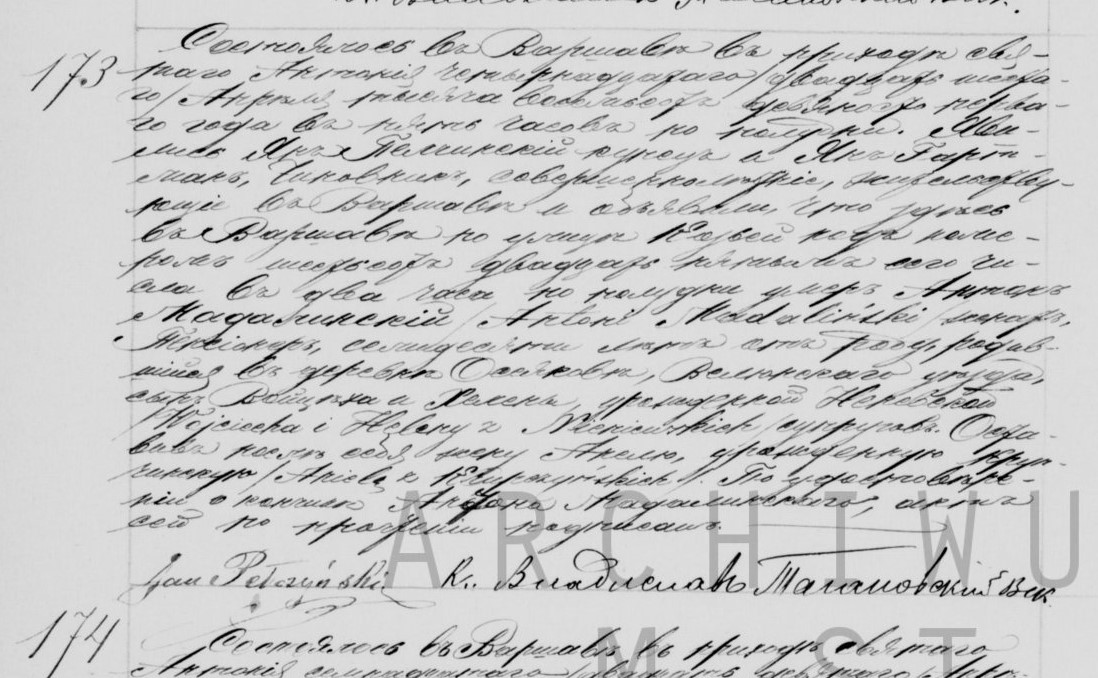 173
Состоялось въ Варшавѣ въ приходѣ свя-
таго Антонія четырнадцатаго /двадцать шеста-
го/ Апрѣля тысяча девятьсотъ перва-
го года въ пять часовъ по полудни. Яви-
лись Янъ Пельчинскій и Янъ Гарт-
манъ, Чиновникъ, совершеннолѣтніе, жительству-
ющіе въ Варшавѣ и объявили, что здѣсь
въ Варшавѣ по улицѣ Козьей подъ номе-
ромъ шестьсотъ двадцать пятымъ сего чи-
сла въ два часа по полудни умеръ Антонъ
Мадалинскій /Antoni Madaliński/ женатъ,
Пенсіонеръ, семидесяти лѣтъ отъ роду, родив-
шійся въ деревнѣ Осяковѣ, Велюнскаго уѣзда,
сынъ Войцѣха и Хелены, урожденной
/Wojciecha i Heleny z /супруговъ. Оста-
вивъ послѣ себя жену Анелю, урожденную Круп-
чинскую /Anielę z /. По удостовѣре-
ніи о кончинѣ Антона Мадалинскаго, актъ
сей по прочтеніи подписанъ.
Jan Pełczyński К. Владиславъ Вик.
ARCHIWU
174
Состоялось въ Варшавѣ въ приходѣ святаго
M ST
Антонія семнадцатаго /двадцать девятаго/ Апрѣ-